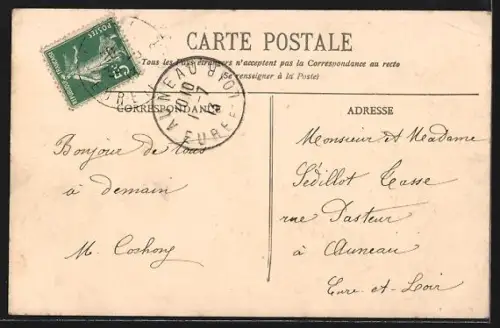 CARTE POSTALE
Tous les Pays étrangers n'acceptent pas la Correspondance au recto
(Se renseigner à la Poste)
CORRESPONDANCE
ADRESSE
AUNEAU
EURE
LOIR
POSTES
5c
Bonjour de tous
à demain
M.
Monsieur et Madame
Sédillot Casse
rue Pasteur
à Auneau
Eure-et-Loir